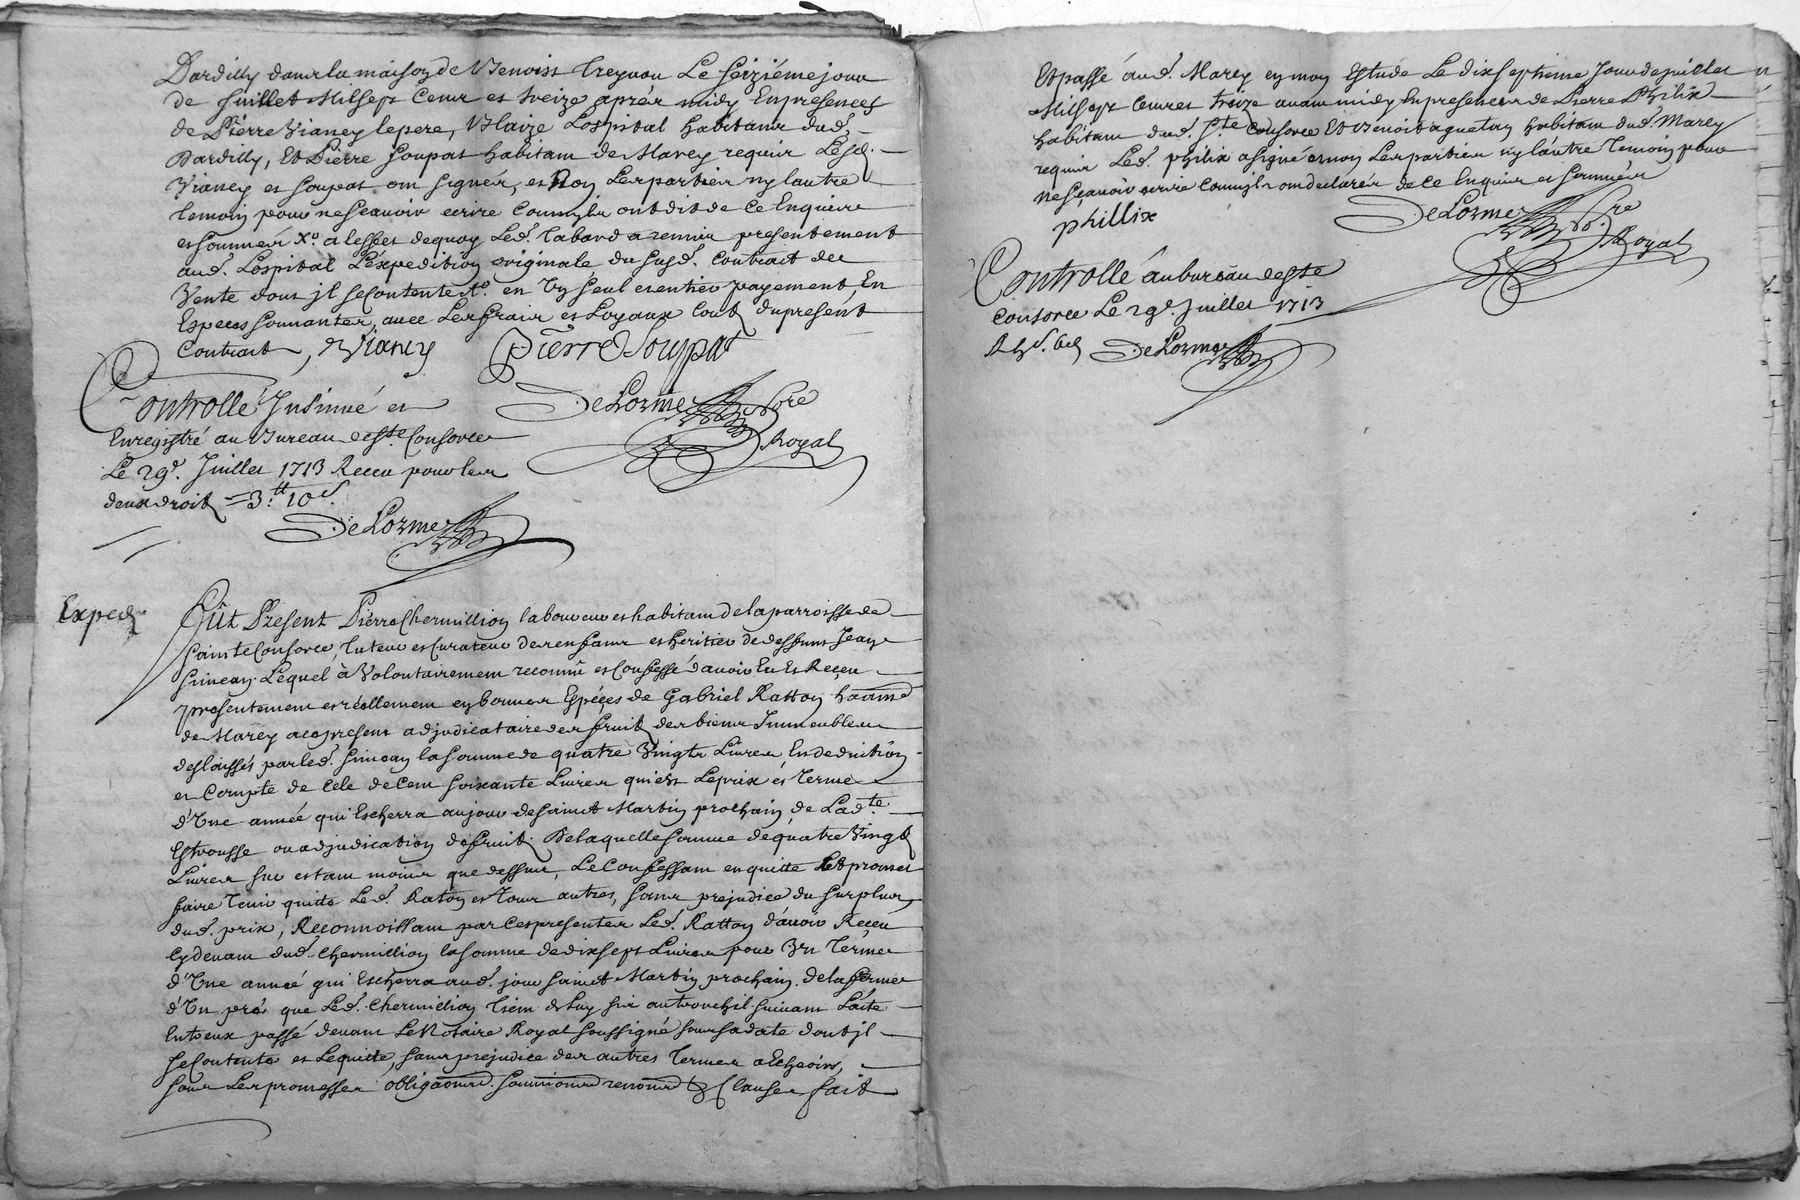 Dardilly dans la maison de Benoist Treyvou Le seizième jour
de Juillet Mil sept cent et treize après midy En presences
de Pierre Vianey le pere, Blaize Lospital habitants dud.
Dardilly, Et Pierre Soupat habitant de Marcy requis Lesd.
Vianey et Soupat ont signés, et non Les parties ny l'autre
temoin pour ne scavoir ecrire comme ils ont dit de ce Enquis
et sommés Xo. a l'effet de quoy Led. Tabard a remis presentement
aud. Lospital L'expedition originale du susd. Contract de
Vente dont jl se contente et en Un seul et entier payement En
Especes sonnantes, avec Les frais et Loyaux couts du present
Contract, Vianey Pierre Soupat
DeLorme Nore
Royal
Controllé Insinué et
Enregistré au Bureau de Ste Consorce
Le 29e. Juillet 1713 Receu pour les
deux droits = 3.tt 10s.
DeLorme
Exped
Fût Present Pierre Chermillion laboureur et habitant de la parroisse de
Sainte Consorce, Tuteur et Curateur des enfants et heritiers de deffunt Jean
Simean Lequel à Volontairement reconnû et Confessé d'avoir Eu Et Receu
presentement et réellement en bonnes Especes de Gabriel Ratton habitant
de Marcy a ce present adjudicataire des fruits des biens Immeubles
deslaissés par led. Simean la somme de quatre Vingts Livres En deduction
et Compte de Cele de Cent soixante Livres qui est Le prix et Terme
d'Une année qui Escherra au jour de Saint Martin prochain, de Ladte.
Estrousse ou adjudication de fruits De laquelle somme de quatre Vingts
Livres sur et tant moins que dessus, Le Confessant en quitte Et promet
faire Tenir quitte Led. Ratton et tous autres, sans prejudice du surplus
dud. prix, Reconnoissant par Ces presentes Led. Ratton d'avoir Receu
Cy devant dud. Chermillion la somme de dix sept Livres pour Un Terme
d'Une année qui Escherra aud. jour Saint Martin prochain de la ferme
d'Un pré que Led. Chermillion Tient de Luy suivant L'acte
Entr'eux passé devant Le Notaire Royal soussigné sous sa date dont jl
se Contente et Le quitte, sans prejudice des autres Termes a Escheoir,
sous Les promesses obligaons. soumions. renons. & Clauses fait
Et passé aud. Marcy en mon Estude Le dixseptieme Jour de juillet
Mil sept Cents et treize avant midy En presences de Pierre Philix
habitant dud. Ste Consorce Et Benoist aguetan habitant dud. Marcy
requis Led. philix a signé et non Les parties ny l'autre Temoin pour
ne sçavoir ecrire Comme ils ont declarés de ce Enquis et sommés
phillix
DeLorme Nore
Royal
Controllé au bureau de Ste
Consorce Le 29e. Juillet 1713
DeLorme